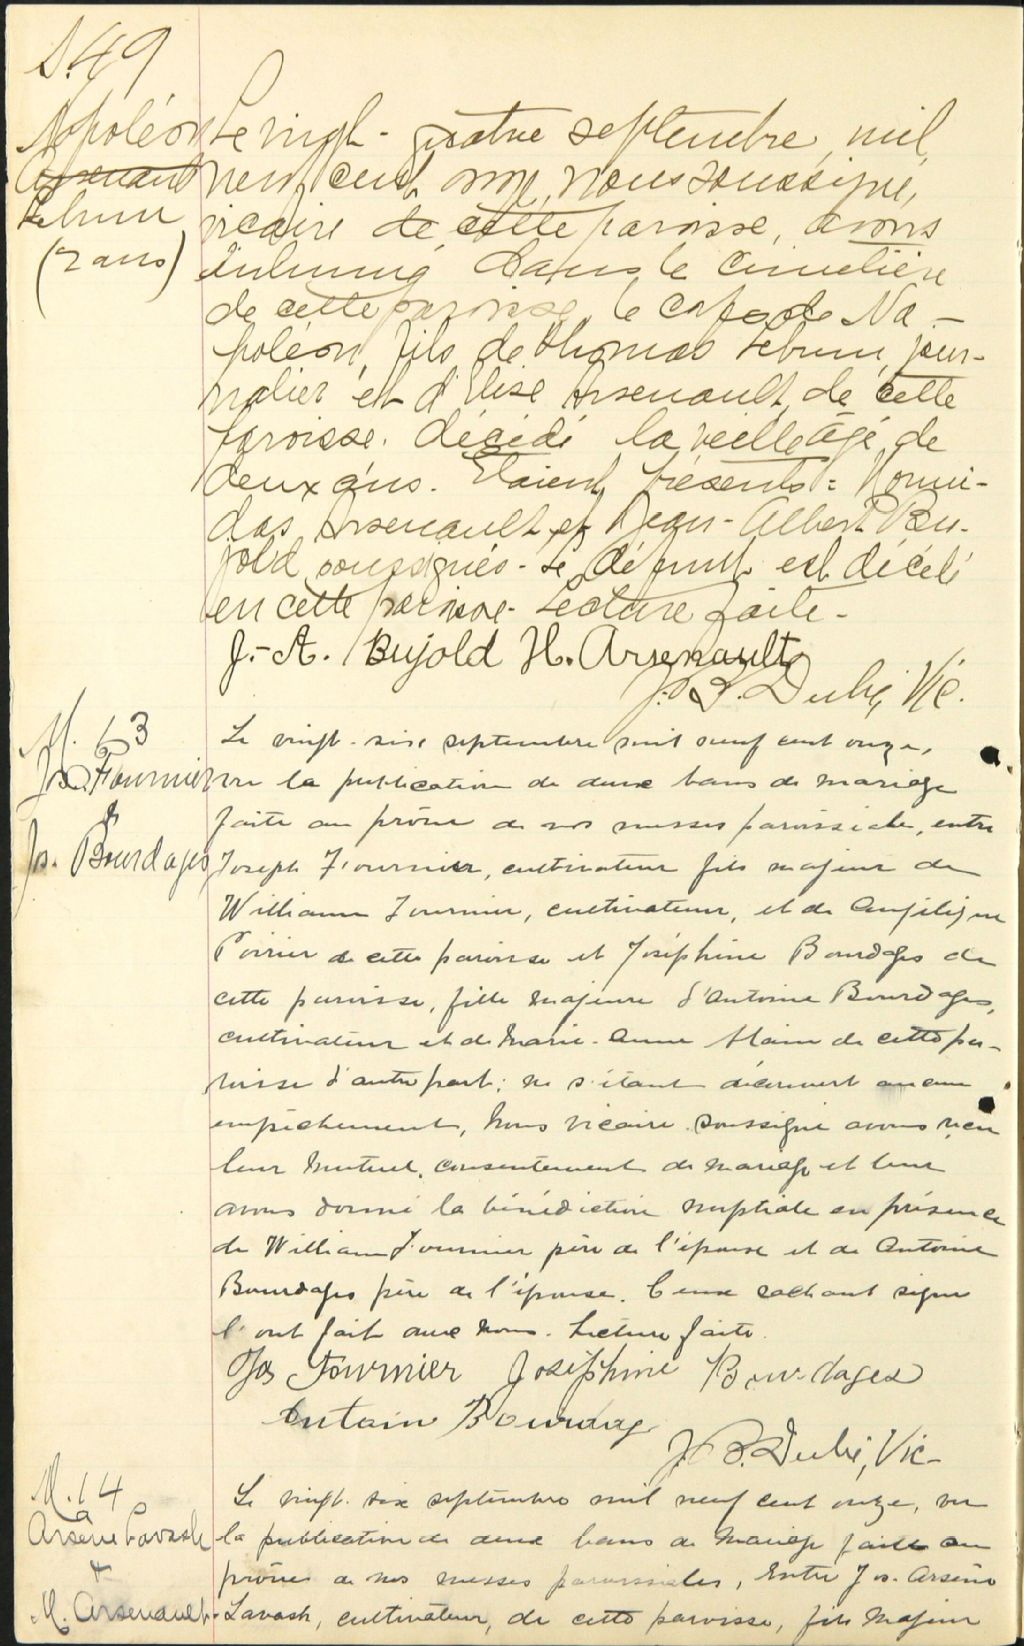 S. 49
Napoléon
Arsenault
Lebrun
(2 ans)
Le vingt-quatre septembre mil
neuf cent onze, nous soussigné,
vicaire de cette paroisse, avons
inhumé dans le cimetière
de cette paroisse, le corps de Na-
poléon, fils de Thomas Lebrun, jour-
nalier et d'Elise Arsenault, de cette
paroisse. décédé la veille âgé de
deux ans. Etaient présents:
das Arsenault et Jean-Albert Bu-
jold soussignés. Le défunt est décédé
en cette paroisse. Lecture faite.
J.-A. Bujold H. Arsenault
J. B. Dubé, Vic.
M. 13
Jos. Fournier
&
Jos. Bourdages
Le vingt-six septembre mil neuf cent onze,
vu la publication de deux bans de mariage
faite au prône de nos messes paroissiales, entre
Joseph Fournier, cultivateur fils majeur de
William Fournier, cultivateur, et de Angélique
Poirier de cette paroisse et Joséphine Bourdages de
cette paroisse, fille majeure d'Antoine Bourdages,
cultivateur et de Marie-Anne Alain de cette pa-
roisse d'autre part; ne s'étant découvert aucun
empêchement, Nous vicaire soussigné avons reçu
leur mutuel consentement de mariage et leur
avons donné la bénédiction nuptiale en présence
de William Fournier père de l'époux et de Antoine
Bourdages père de l'épouse. Ceux sachant signer
l'ont fait avec Nous. Lecture faite.
Jos Fournier Joséphine Bourdages
Antoin Bourdag
J. B. Dubé, Vic-
M. 14
Arsène Lavash
+
M. Arsenault
Le vingt-six septembre mil neuf cent onze, vu
la publication de deux bans de mariage faite au
prône de nos messes paroissiales, Entre Jos. Arsène
Lavash, cultivateur, de cette paroisse, fils majeur